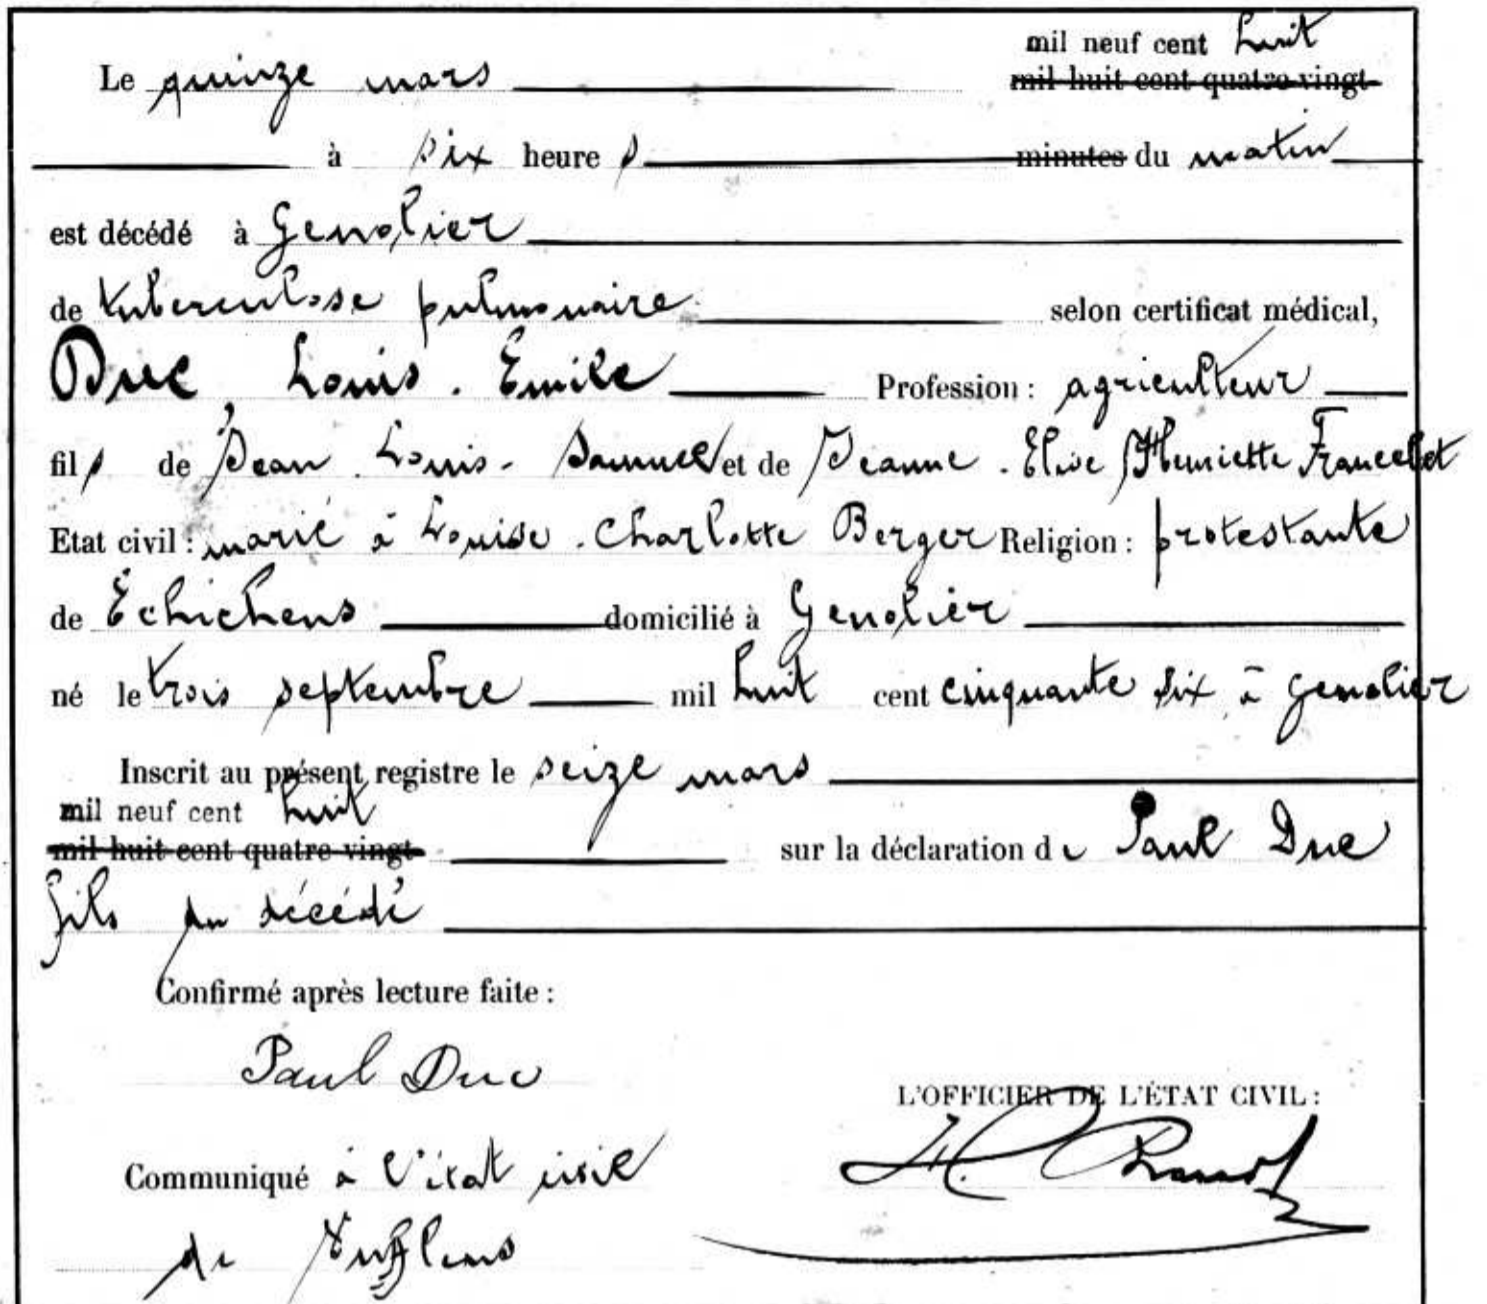 mil neuf cent huit
Le quinze mars mil huit cent quatre-vingt
à six heures minutes du matin
est décédé à Genolier
de tuberculose pulmonaire selon certificat médical,
Duc, Louis. Emile Profession : agriculteur
fils de Jean Louis. Samuel et de Jeanne. Elise Henriette Francelet
Etat civil : marié à Louise. Charlotte Berger Religion : protestante
de Echichens domicilié à Genolier
né le trois septembre mil huit cent cinquante six, à Genolier
Inscrit au présent registre le seize mars
mil neuf cent huit
mil huit cent quatre-vingt sur la déclaration de Paul Duc
fils du décédé
Confirmé après lecture faite :
Paul Duc
L'OFFICIER DE L'ÉTAT CIVIL :
Communiqué à l'état civil
de Vufflens